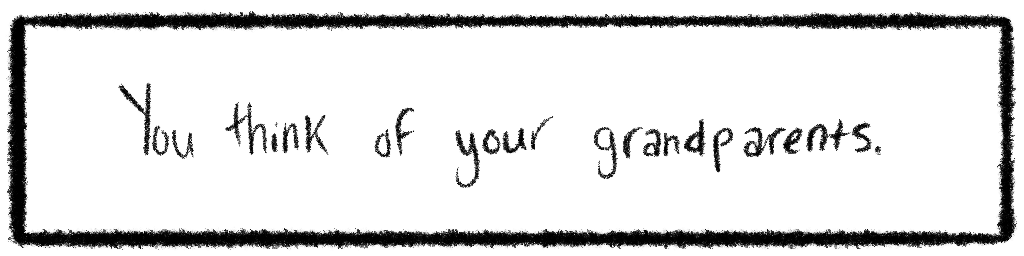 You think of your grandparents.